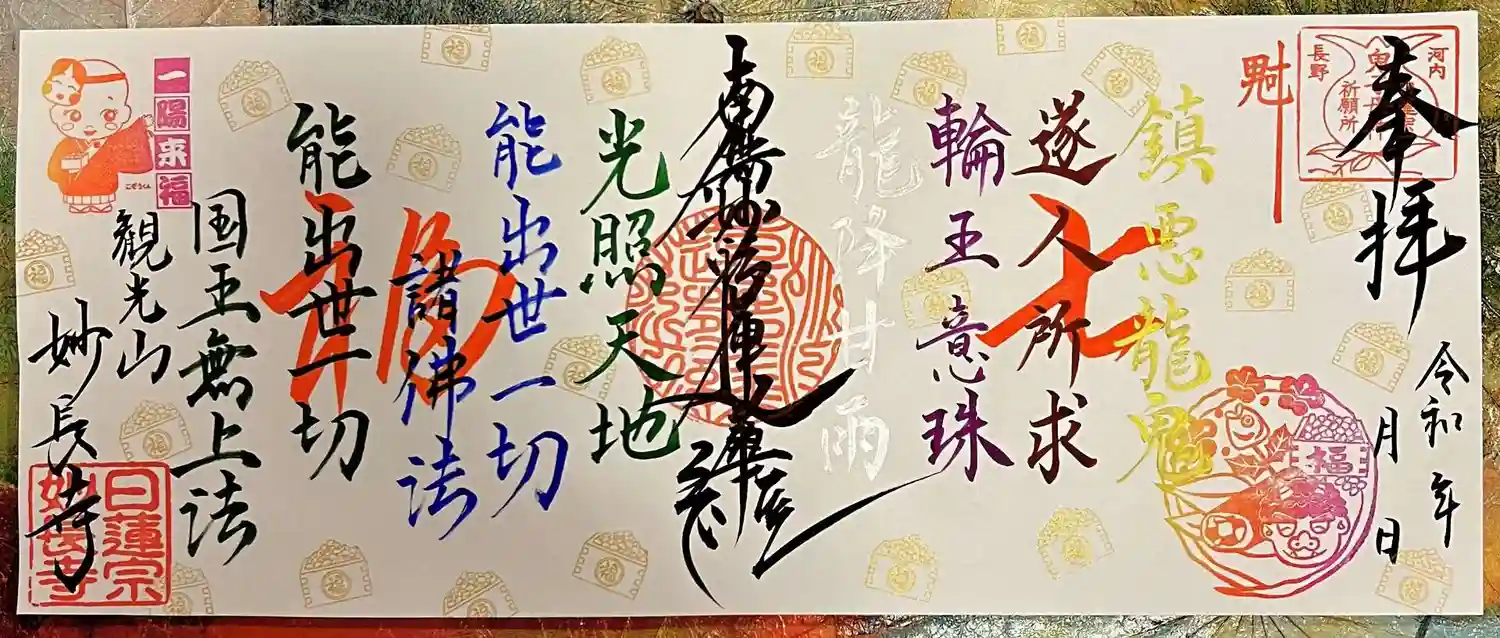 奉拝
河内
長野
祈願所
令和 年
月 日
鎮悪龍鬼
遂人所求
輪王意珠
龍降甘雨
南無妙法蓮華経
光照天地
能出世一切
諸佛法
能出世一切
国王無上法
観光山
妙長寺
一陽来福
こぞうくん
日蓮宗
妙長寺
福